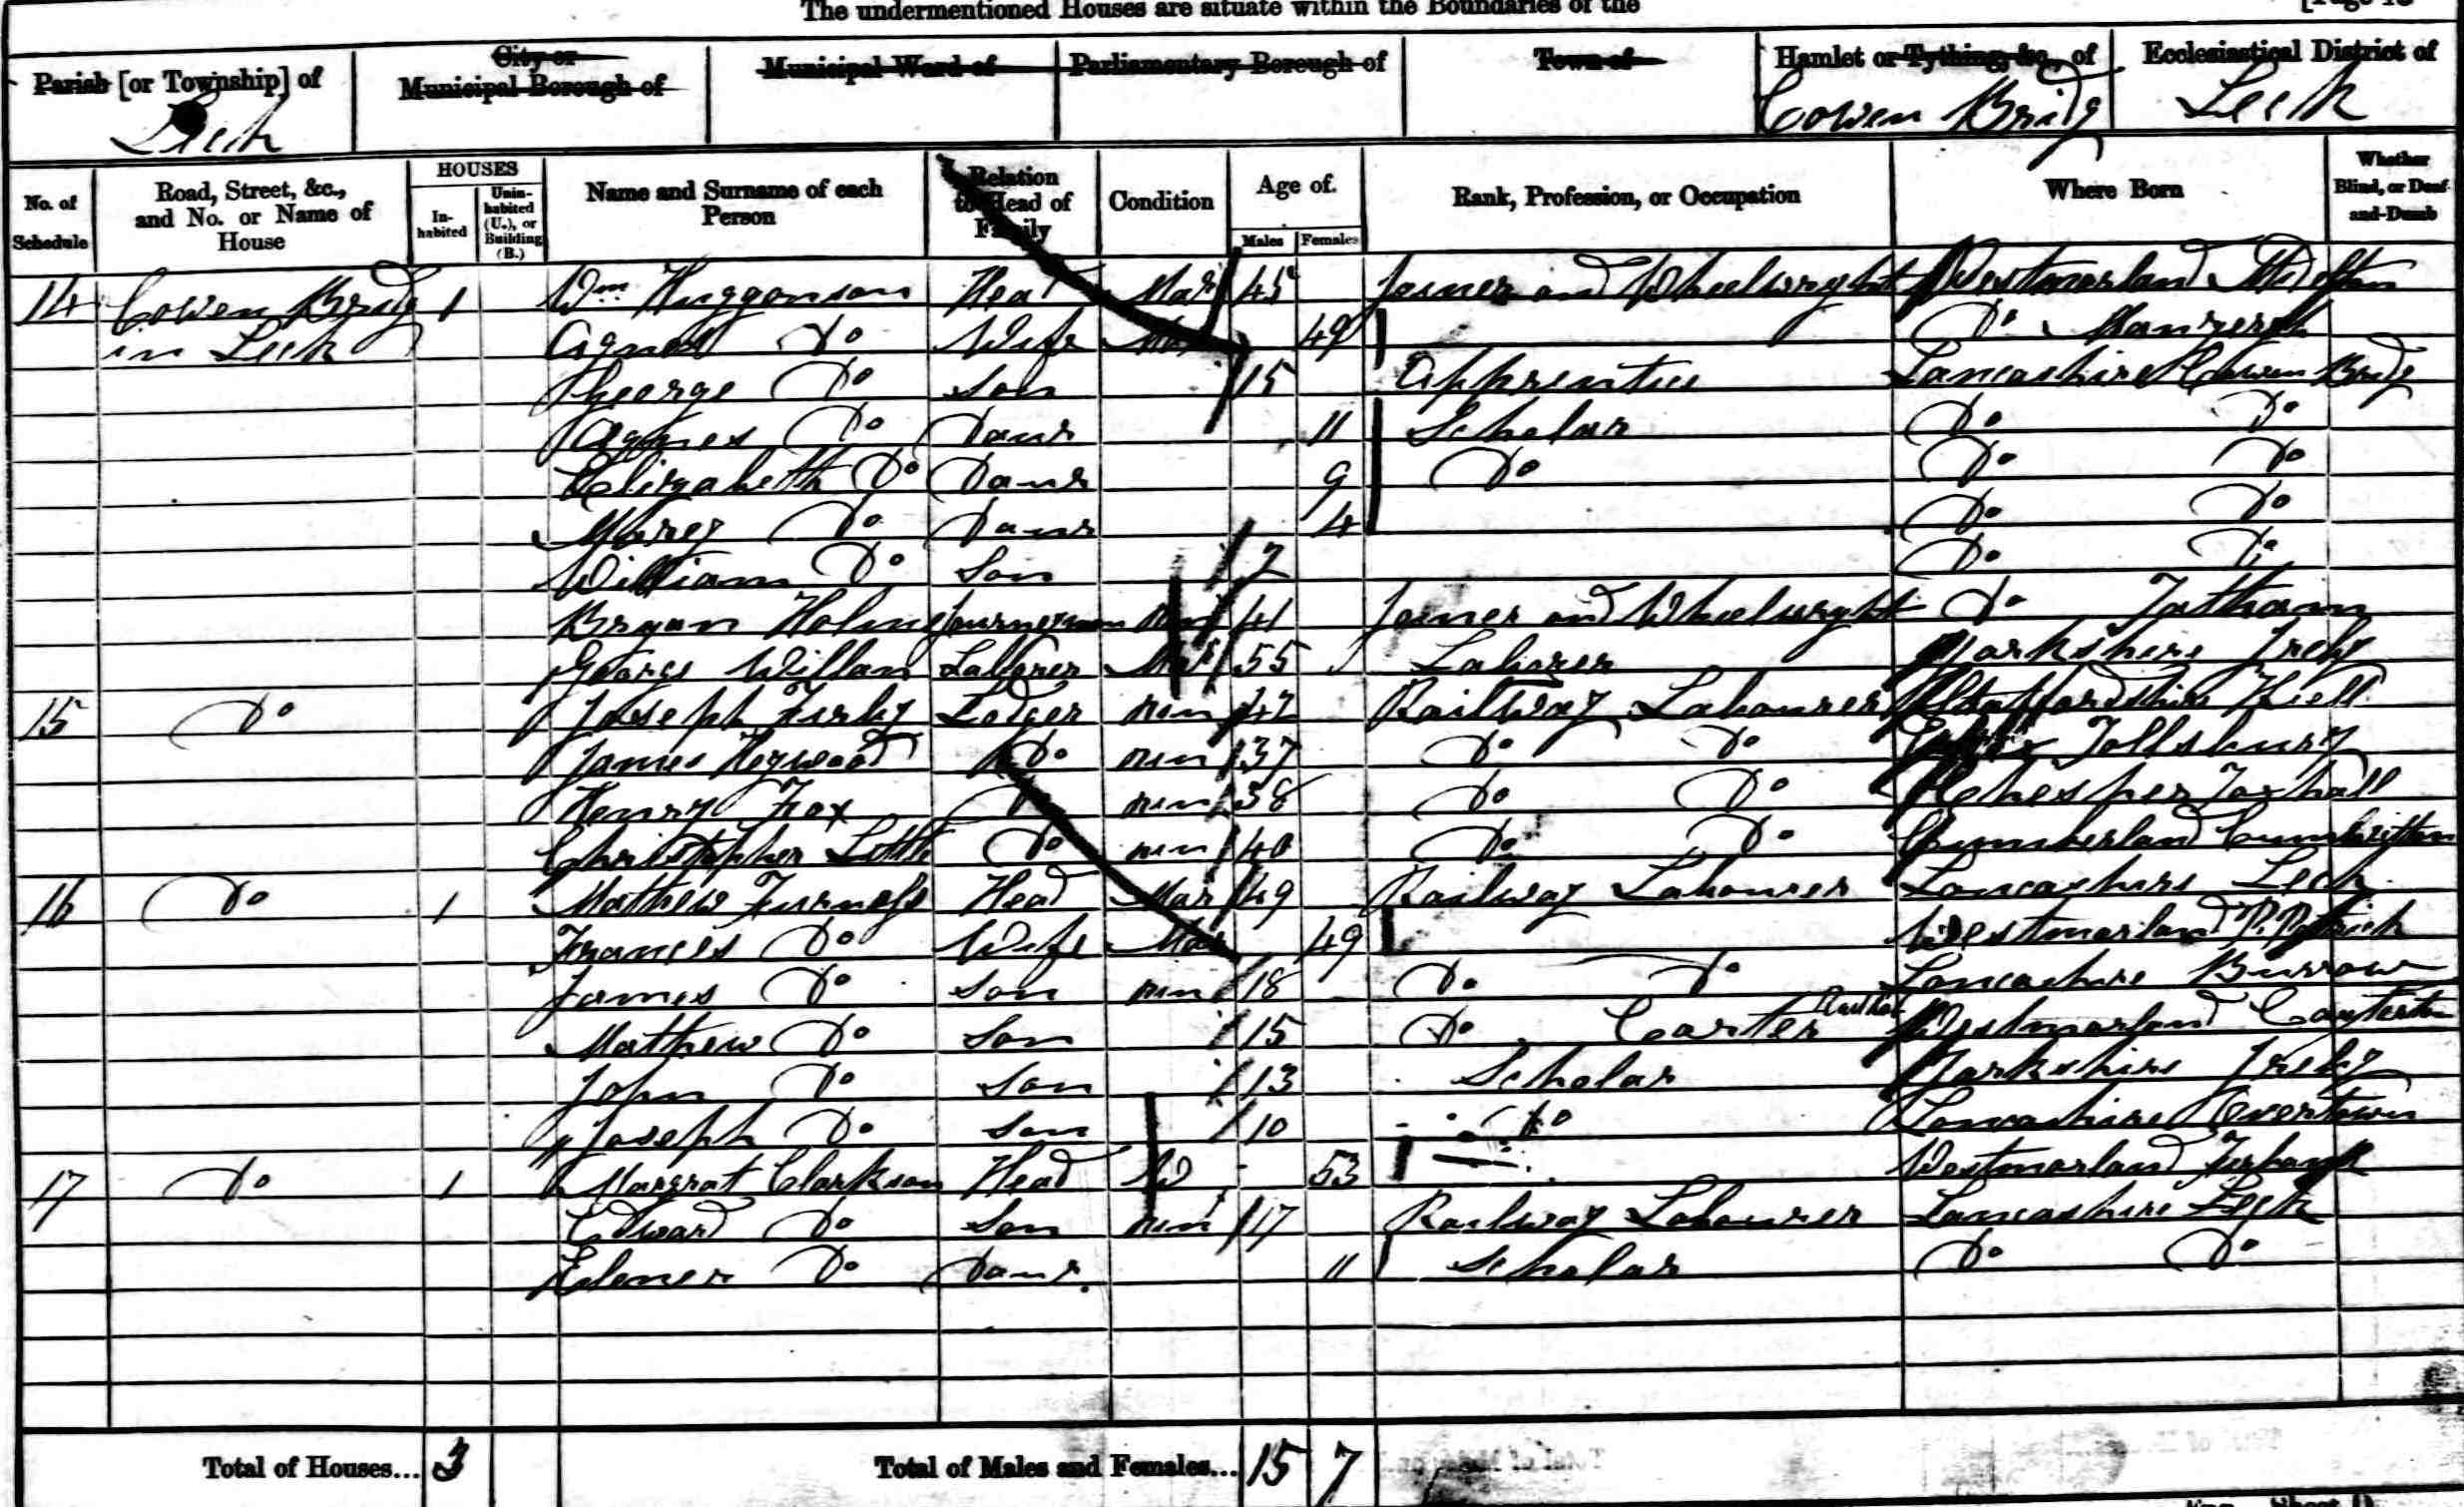 The undermentioned Houses are situate within the Boundaries of the
Parish [or Township] of
Leck
City or
Municipal Borough of
Municipal Ward of
Parliamentary Borough of
Town of
Hamlet or Tything, &c., of
Cowen Bridg
Ecclesiastical District of
Leck
No. of Schedule
Road, Street, &c., and No. or Name of House
HOUSES
In-habited
Unin-habited (U.), or Building (B.)
Name and Surname of each Person
Relation to Head of Family
Condition
Age of
Males
Females
Rank, Profession, or Occupation
Where Born
Whether Blind, or Deaf-and-Dumb
14 Cowen Bridg 1 Wm Huggonson Head Mar 45 Joiner and Wheelwryght Westmorland
in Leck Agnes Do Wife Mar 49 Do Manzergh
George Do Son 15 Apprentice Lancashire Cowen Bridg
Agnes Do Daur 11 Scholar Do Do
Elizabeth Do Daur 9 Do Do Do
Marey Do Daur 4 Do Do
William Do Son 2 Do Do
Bryan Holme Journeyman 41 Joiner and Wheelwryght Do Tatham
George Willan Laborer Mar 55 Laborer Yorkshire Ireby
15 Do Joseph Furby Lodger unm 42 Railway Labourer Staffordshire
James Heywood Do unm 37 Do Do Tollsbury
Henry Fox Do unm 38 Do Do
Christopher Little Do unm 40 Do Do Cumberland Cumwhitton
16 Do 1 Mathew Furness Head Mar 49 Railway Labourer Lancashire Leck
Frances Do Wife Mar 49 Westmorland
James Do Son unm 18 Do Do Lancashire Burrow
Mathew Do Son 15 Do Carter Westmorland Casterton
John Do Son 13 Scholar Yorkshire Ireby
Joseph Do Son 10 Do Lancashire Overtown
17 Do 1 Margrat Clarkson Head W 53 Westmorland Firbank
Edward Do Son unm 17 Railway Labourer Lancashire Leck
Elener Do Daur. 11 Scholar Do Do
Total of Houses... 3
Total of Males and Females... 15 7